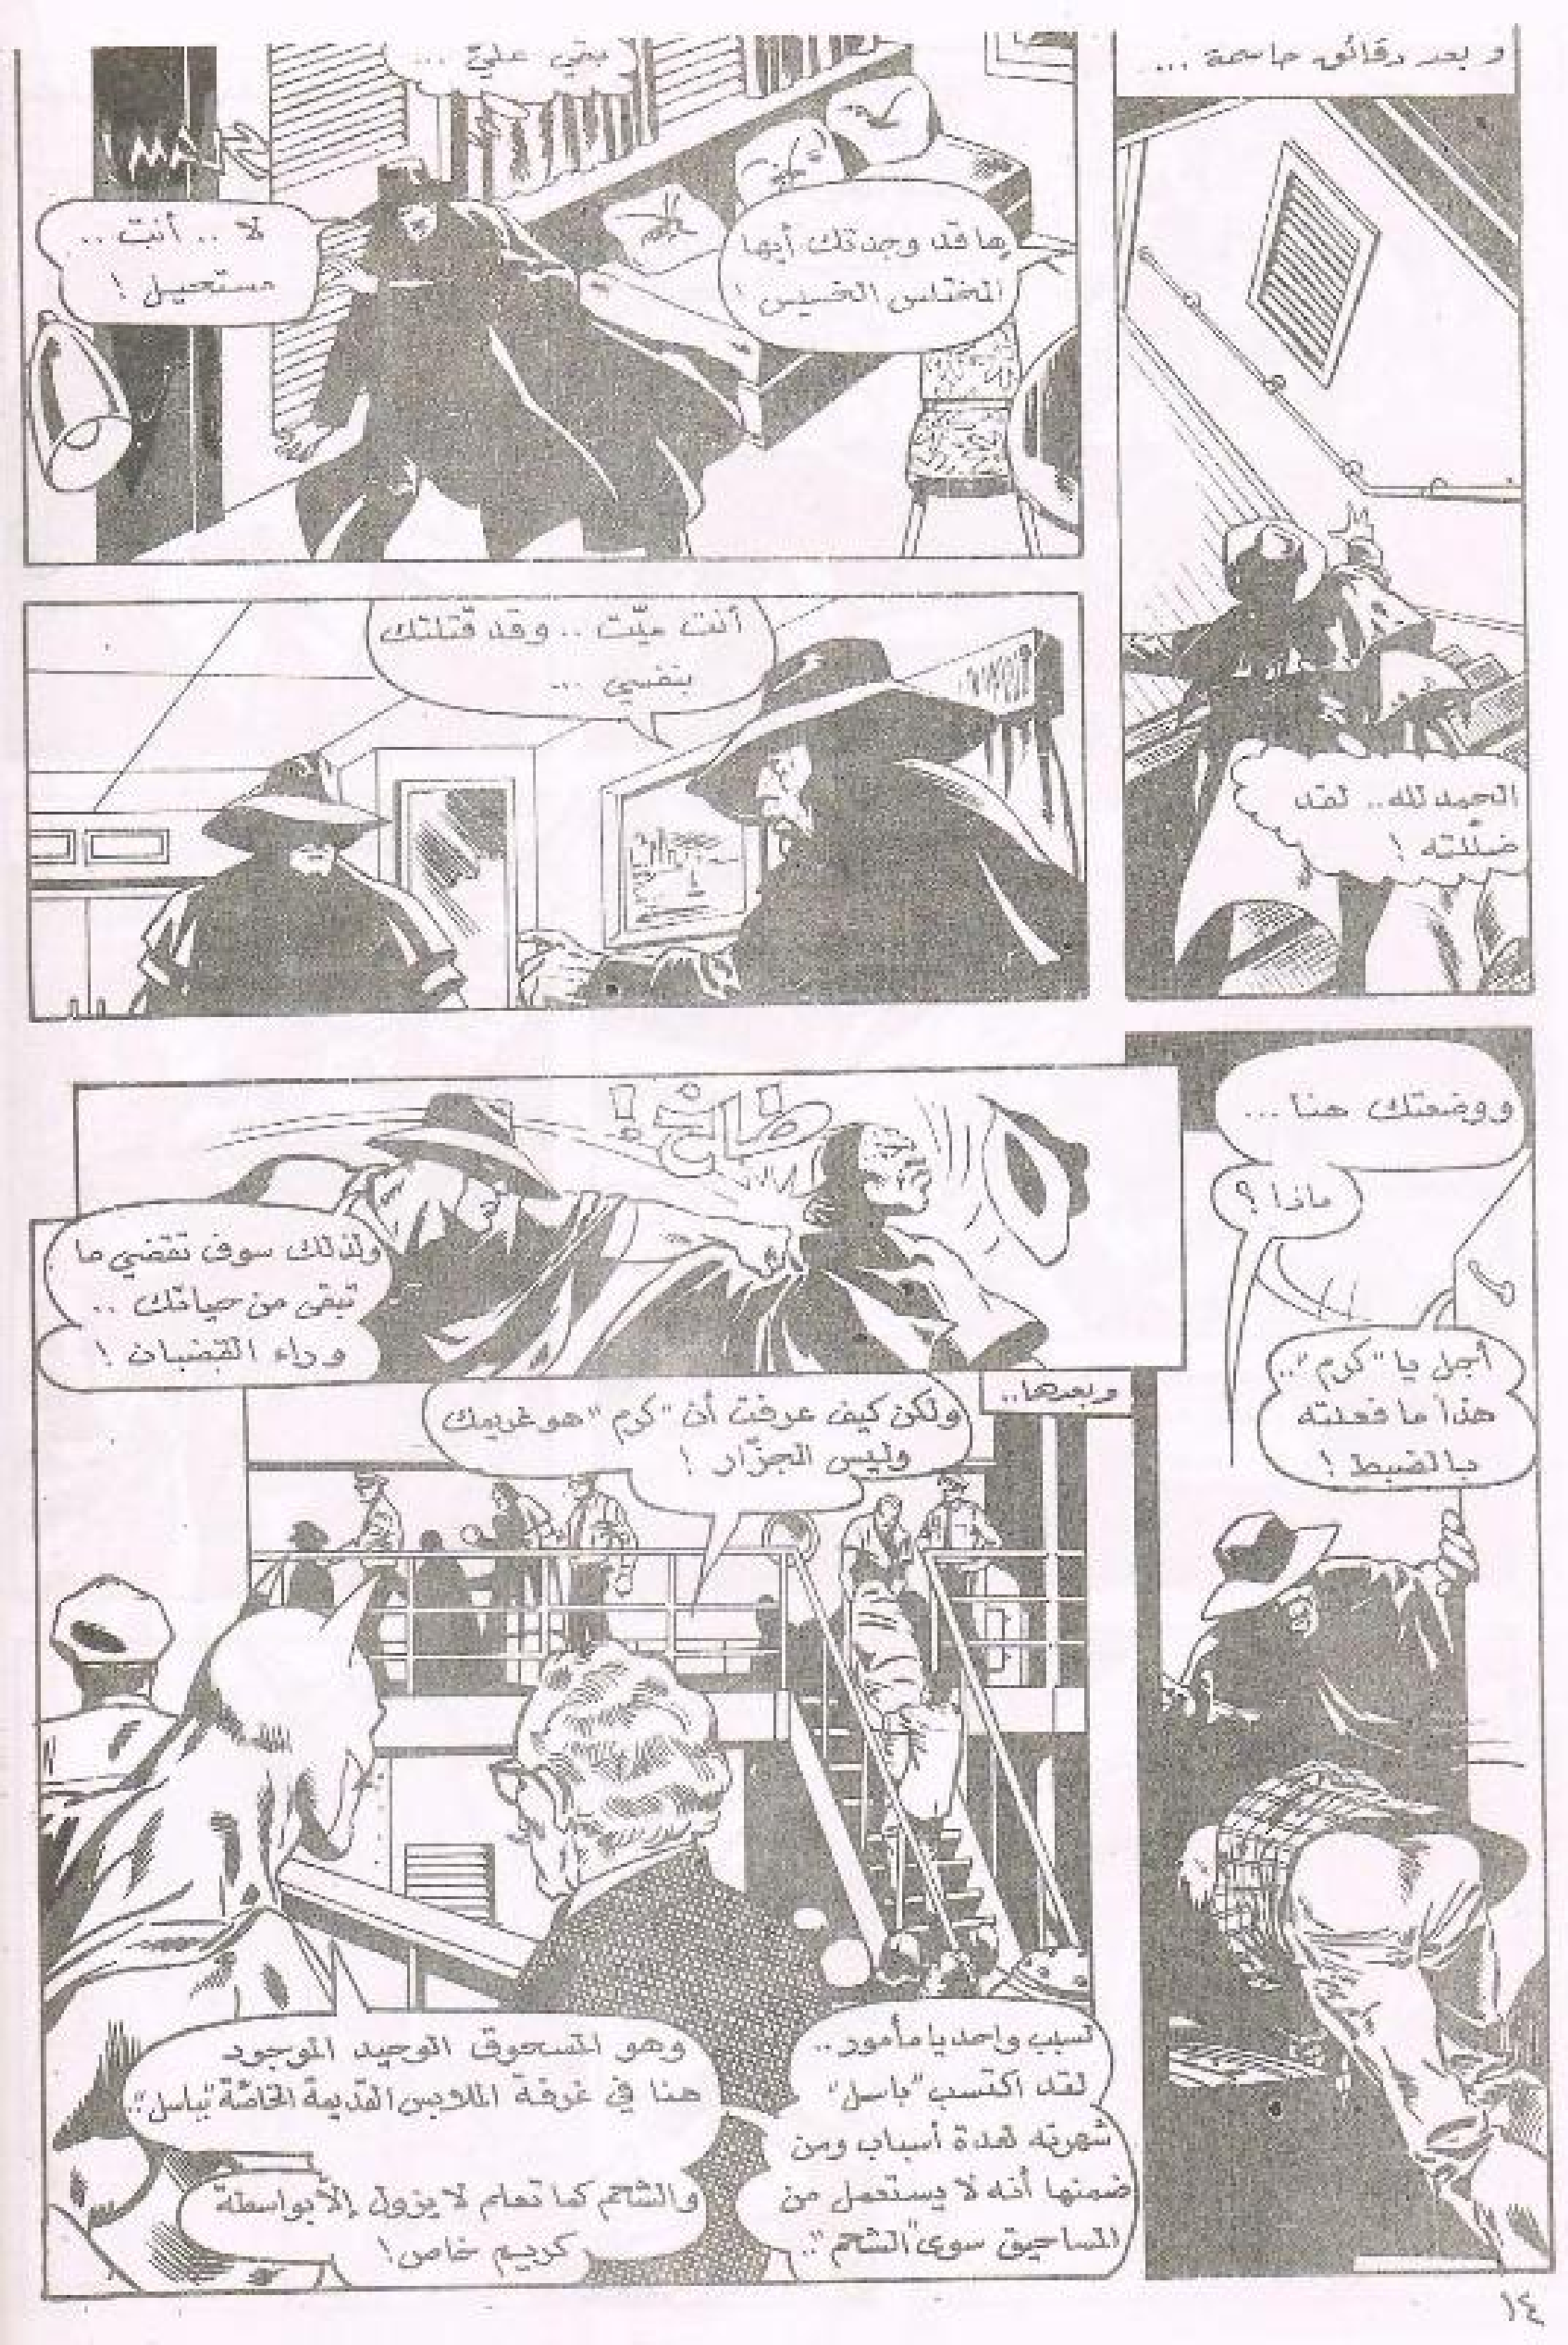 و بعد دقائق حاسمة ...
الحمد لله.. لقد
ضلّلته !
بقي عليّ ...
ها قد وجدتك أيها
المختلس الخسيس !
لا .. أنت ..
مستحيل !
أنت ميّت .. وقد قتلتك
بنفسي ...
ووضعتك هنا ...
ماذا ؟
أجل يا "كرم"..
هذا ما فعلته
بالضبط !
طاخ !
ولذلك سوف تقضي ما
تبقى من حياتك ..
وراء القضبان !
وبعدها..
ولكن كيف عرفت أن "كرم" هو غريمك
وليس الجزّار !
لسبب واحد يا مأمور ..
لقد اكتسب "باسل"
شهرته لعدة أسباب ومن
ضمنها أنه لا يستعمل من
المساحيق سوى "الشحم"..
وهو المسحوق الوحيد الموجود
هنا في غرفة الملابس القديمة الخاصّة "بباسل"..
والشحم كما تعلم لا يزول إلّا بواسطة
كريم خاص !
١٤